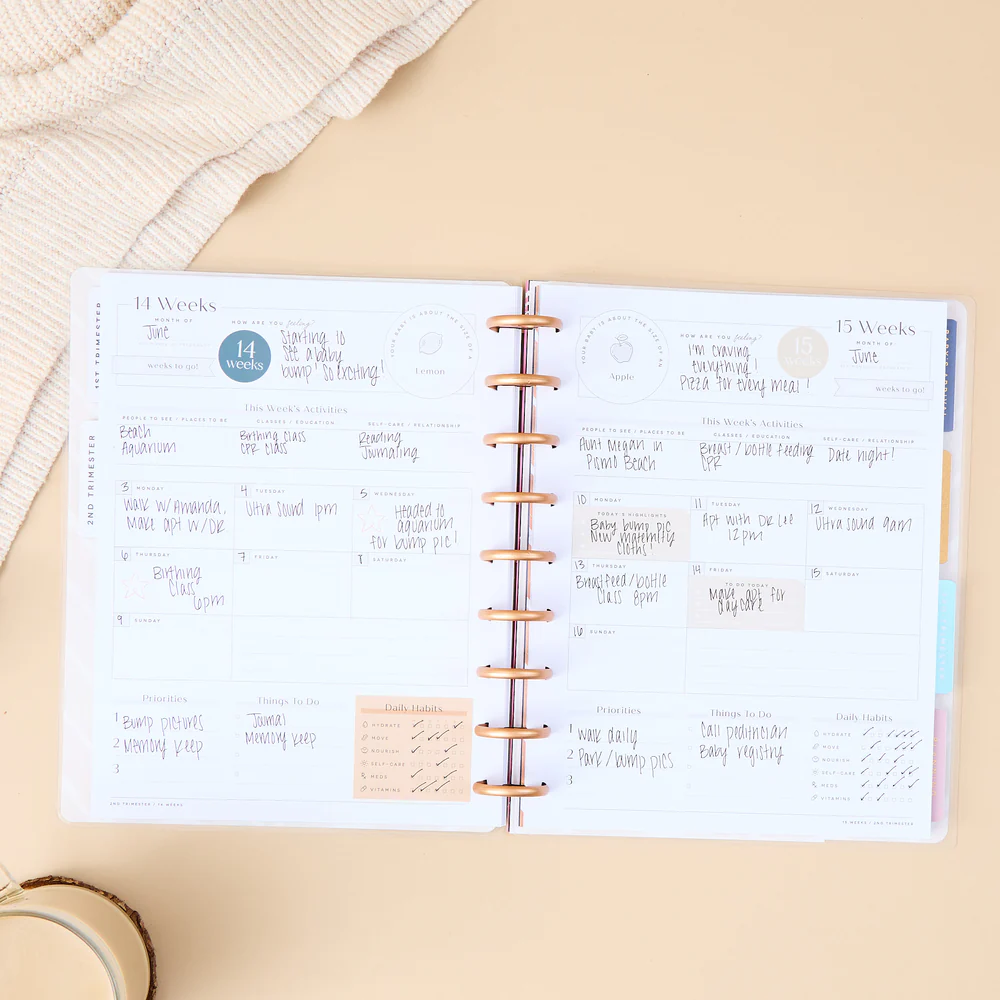 1ST TRIMESTER
2ND TRIMESTER
14 Weeks
MONTH OF
June
weeks to go!
14
weeks
HOW ARE YOU feeling?
Starting to
see a baby
bump! So exciting!
YOUR BABY IS ABOUT THE SIZE OF A
Lemon
This Week's Activities
PEOPLE TO SEE / PLACES TO BE
Beach
Aquarium
CLASSES / EDUCATION
Birthing class
CPR class
SELF-CARE / RELATIONSHIP
Reading
Journaling
3 MONDAY
Walk w/Amanda,
Make apt w/DR
4 TUESDAY
Ultra sound 1pm
5 WEDNESDAY
Headed to
aquarium
for bump pic!
6 THURSDAY
Birthing
Class
6pm
7 FRIDAY
8 SATURDAY
9 SUNDAY
Priorities
1 Bump pictures
2 Memory keep
3
Things To Do
Journal
Memory keep
Daily Habits
HYDRATE
MOVE
NOURISH
SELF-CARE
MEDS
VITAMINS
2ND TRIMESTER / 14 WEEKS
YOUR BABY IS ABOUT THE SIZE OF AN
Apple
HOW ARE YOU feeling?
I'm craving
everything!
Pizza for every meal!
15
weeks
15 Weeks
MONTH OF
June
weeks to go!
This Week's Activities
PEOPLE TO SEE / PLACES TO BE
Aunt Megan in
Pismo Beach
CLASSES / EDUCATION
Breast / bottle feeding
CPR
SELF-CARE / RELATIONSHIP
Date night!
10 MONDAY
TODAY'S HIGHLIGHTS
Baby bump pic
New maternity
cloths!
11 TUESDAY
Apt with DR Lee
12pm
12 WEDNESDAY
Ultra sound 9am
13 THURSDAY
Breastfeed/bottle
class 8pm
14 FRIDAY
TO DO TODAY
Make apt for
daycare
15 SATURDAY
16 SUNDAY
Priorities
1 Walk daily
2 Park/bump pics
3
Things To Do
Call peditician
Baby registry
Daily Habits
HYDRATE
MOVE
NOURISH
SELF-CARE
MEDS
VITAMINS
15 WEEKS / 2ND TRIMESTER